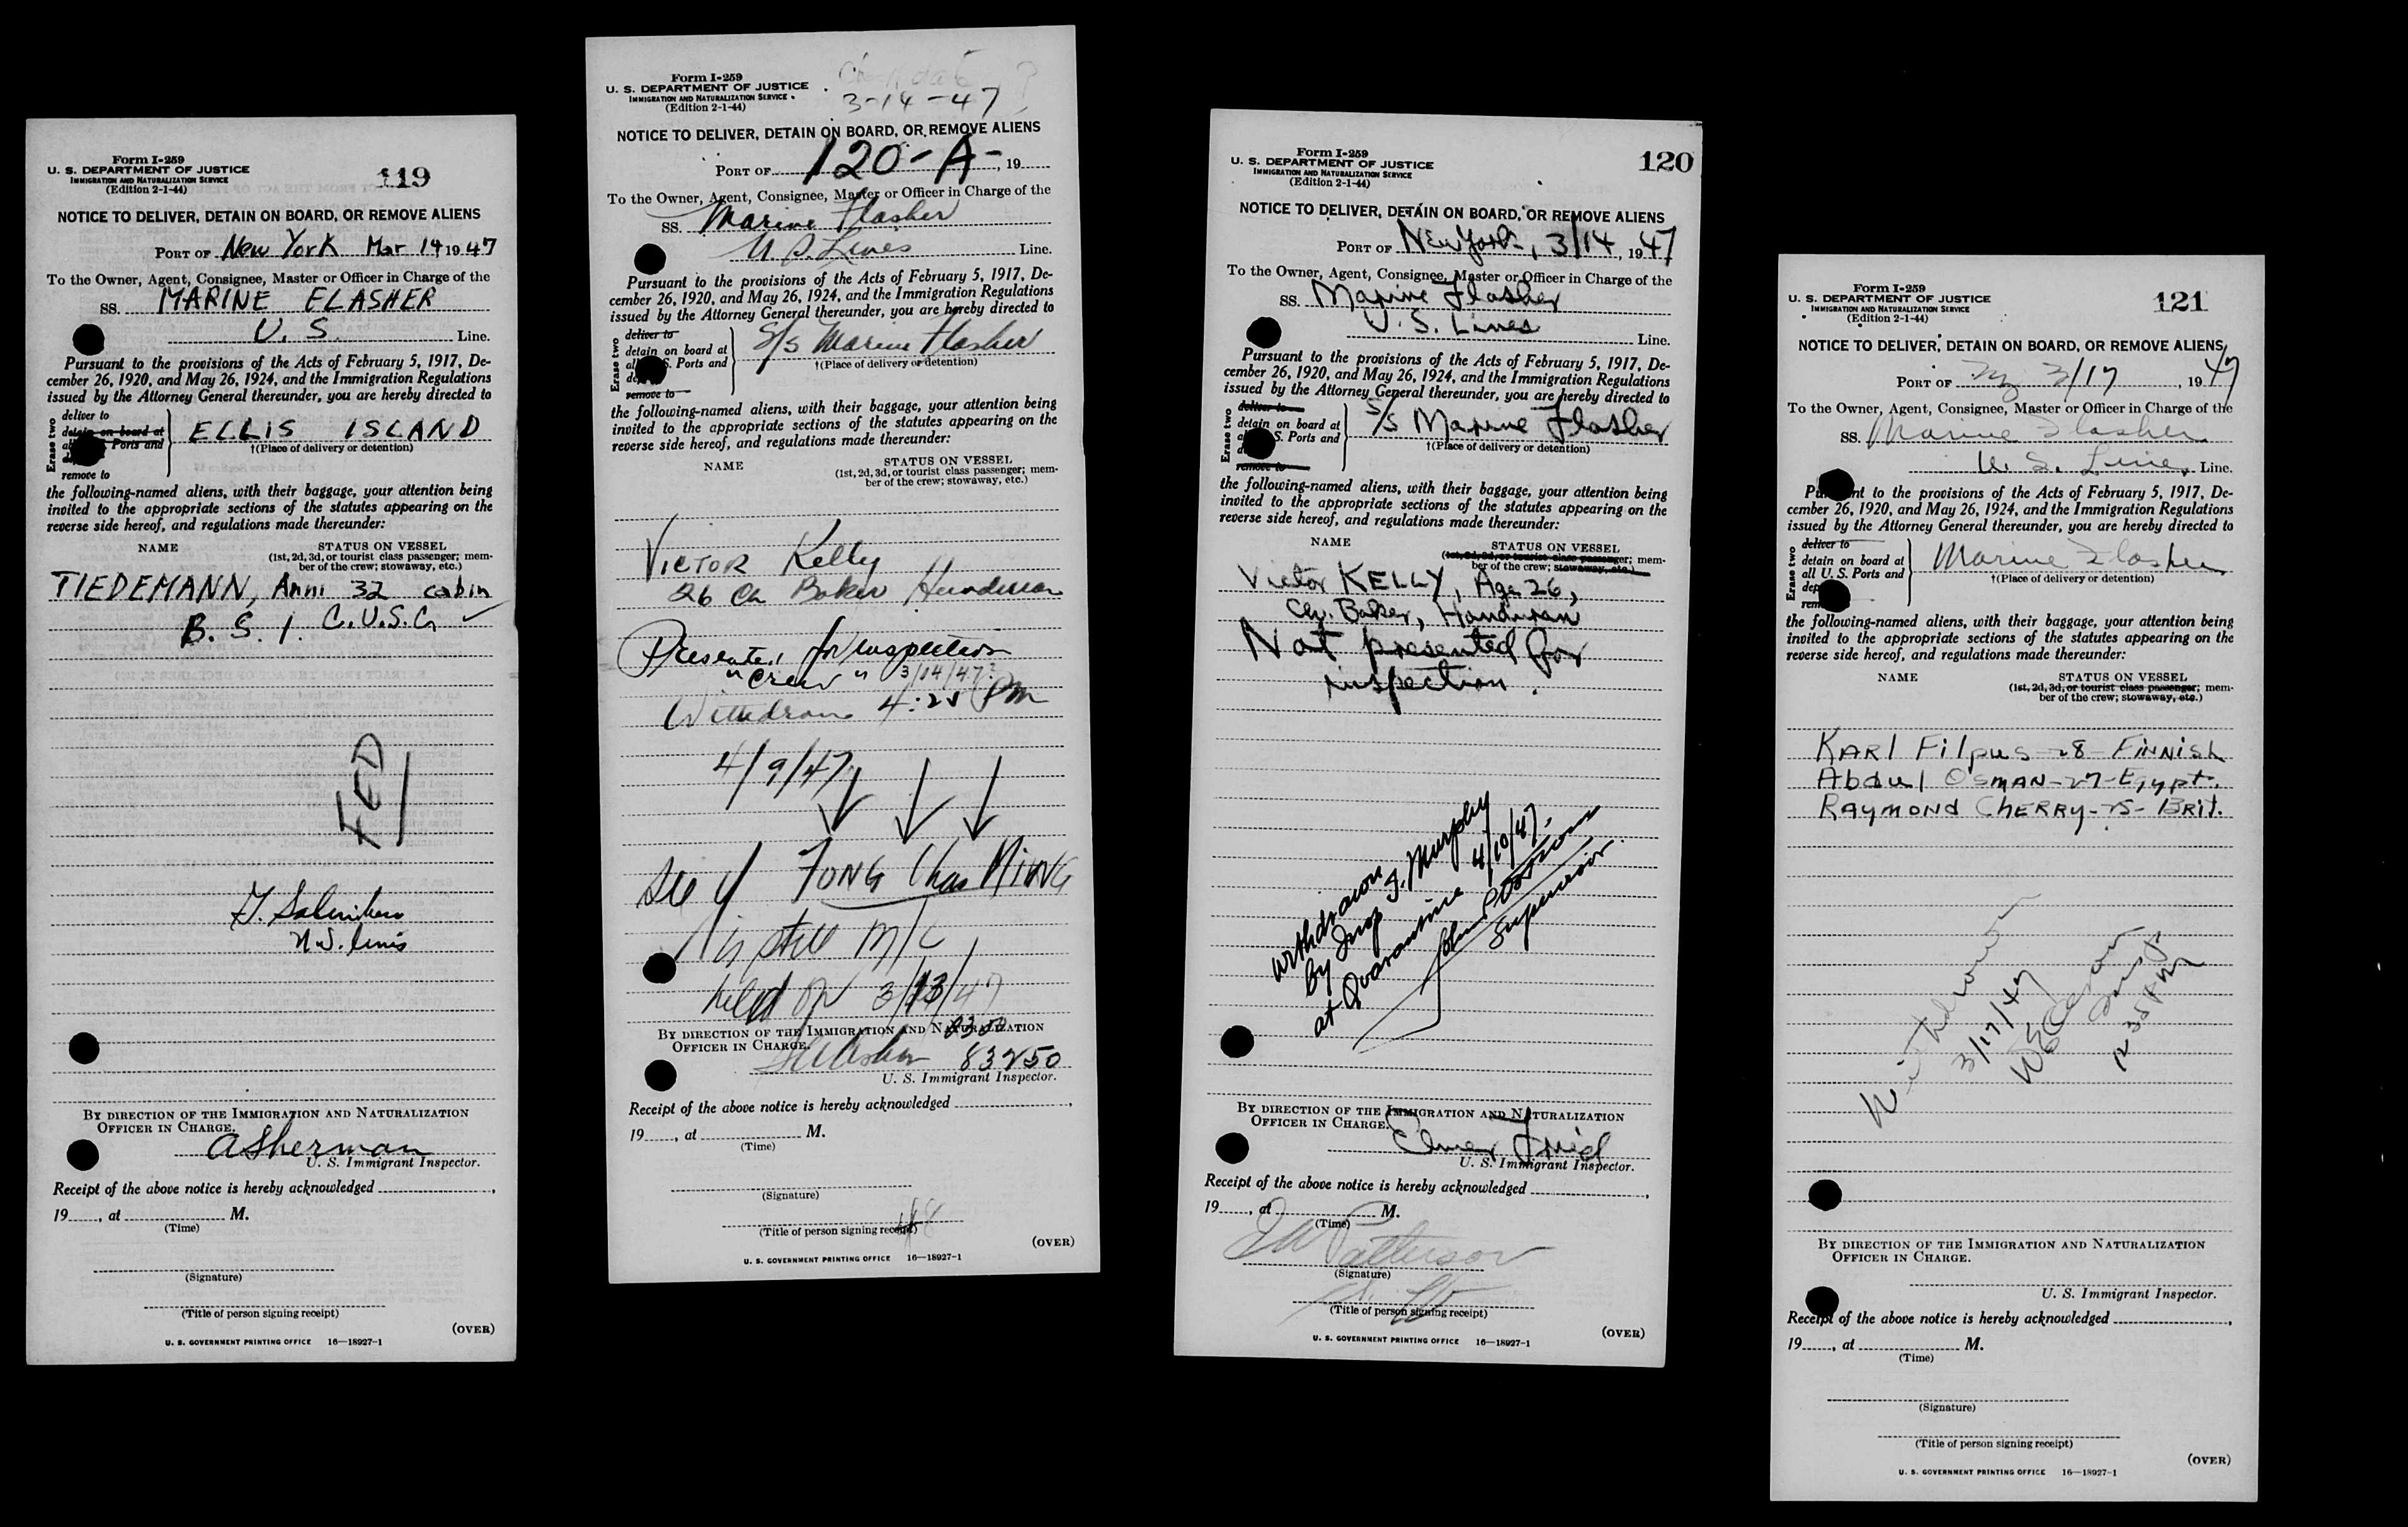 Form I-259
U. S. DEPARTMENT OF JUSTICE
IMMIGRATION AND NATURALIZATION SERVICE
(Edition 2-1-44)
119
NOTICE TO DELIVER, DETAIN ON BOARD, OR REMOVE ALIENS
PORT OF New York Mar 14 1947
To the Owner, Agent, Consignee, Master or Officer in Charge of the
SS. MARINE FLASHER
U. S. Line.
Pursuant to the provisions of the Acts of February 5, 1917, De-
cember 26, 1920, and May 26, 1924, and the Immigration Regulations
issued by the Attorney General thereunder, you are hereby directed to
Erase two
deliver to
detain on board at
Ports and
remove to
ELLIS ISLAND
†(Place of delivery or detention)
the following-named aliens, with their baggage, your attention being
invited to the appropriate sections of the statutes appearing on the
reverse side hereof, and regulations made thereunder:
NAME STATUS ON VESSEL
(1st, 2d, 3d, or tourist class passenger; mem-
ber of the crew; stowaway, etc.)
TIEDEMANN, Anni 32 cabin
B. S. I. C.U.S.G ✓
U.S. Lines
BY DIRECTION OF THE IMMIGRATION AND NATURALIZATION
OFFICER IN CHARGE.
A Sherman
U. S. Immigrant Inspector.
Receipt of the above notice is hereby acknowledged
19, at M.
(Time)
(Signature)
(Title of person signing receipt)
(OVER)
U. S. GOVERNMENT PRINTING OFFICE 16—18927-1
Form I-259
U. S. DEPARTMENT OF JUSTICE
IMMIGRATION AND NATURALIZATION SERVICE
(Edition 2-1-44)
3-14-47
NOTICE TO DELIVER, DETAIN ON BOARD, OR REMOVE ALIENS
PORT OF 120-A-, 19
To the Owner, Agent, Consignee, Master or Officer in Charge of the
SS. Marine Flasher
U.S. Lines Line.
Pursuant to the provisions of the Acts of February 5, 1917, De-
cember 26, 1920, and May 26, 1924, and the Immigration Regulations
issued by the Attorney General thereunder, you are hereby directed to
Erase two
deliver to
detain on board at
S. Ports and
remove to
S/S Marine Flasher
†(Place of delivery or detention)
the following-named aliens, with their baggage, your attention being
invited to the appropriate sections of the statutes appearing on the
reverse side hereof, and regulations made thereunder:
NAME STATUS ON VESSEL
(1st, 2d, 3d, or tourist class passenger; mem-
ber of the crew; stowaway, etc.)
VICTOR Kelly
26 Ch Baker Honduran
Presented for inspection
"crew" 3/14/47
Withdrawn 4:25 PM
4/9/47
See if FONG Chas MING
is still M/C
held on 3/13/47
BY DIRECTION OF THE IMMIGRATION AND NATURALIZATION
OFFICER IN CHARGE.
83250
U. S. Immigrant Inspector.
Receipt of the above notice is hereby acknowledged
19, at M.
(Time)
(Signature)
(Title of person signing receipt)
(OVER)
U. S. GOVERNMENT PRINTING OFFICE 16—18927-1
Form I-259
U. S. DEPARTMENT OF JUSTICE
IMMIGRATION AND NATURALIZATION SERVICE
(Edition 2-1-44)
120
NOTICE TO DELIVER, DETAIN ON BOARD, OR REMOVE ALIENS
PORT OF New York, 3/14, 1947
To the Owner, Agent, Consignee, Master or Officer in Charge of the
SS. Marine Flasher
U.S. Lines
Line.
Pursuant to the provisions of the Acts of February 5, 1917, De-
cember 26, 1920, and May 26, 1924, and the Immigration Regulations
issued by the Attorney General thereunder, you are hereby directed to
Erase two
deliver to
detain on board at
S. Ports and
remove to
S/S Marine Flasher
†(Place of delivery or detention)
the following-named aliens, with their baggage, your attention being
invited to the appropriate sections of the statutes appearing on the
reverse side hereof, and regulations made thereunder:
NAME STATUS ON VESSEL
(1st, 2d, 3d, or tourist class passenger; mem-
ber of the crew; stowaway, etc.)
Victor KELLY, Age 26,
Ch. Baker, Honduran
Not presented for
inspection.
withdrawn
by Insp J. Murphy
at Quarantine 4/10/47.
Supervisor.
BY DIRECTION OF THE IMMIGRATION AND NATURALIZATION
OFFICER IN CHARGE.
Elmer Fried
U. S. Immigrant Inspector.
Receipt of the above notice is hereby acknowledged
19, at M.
(Time)
Patterson
(Signature)
(Title of person signing receipt)
(OVER)
U. S. GOVERNMENT PRINTING OFFICE 16—18927-1
Form I-259
U. S. DEPARTMENT OF JUSTICE
IMMIGRATION AND NATURALIZATION SERVICE
(Edition 2-1-44)
121
NOTICE TO DELIVER, DETAIN ON BOARD, OR REMOVE ALIENS
PORT OF NY 3/17, 1947
To the Owner, Agent, Consignee, Master or Officer in Charge of the
SS. Marine Flasher
U. S. Lines Line.
Pursuant to the provisions of the Acts of February 5, 1917, De-
cember 26, 1920, and May 26, 1924, and the Immigration Regulations
issued by the Attorney General thereunder, you are hereby directed to
Erase two
deliver to
detain on board at
all U. S. Ports and
Marine Flasher
†(Place of delivery or detention)
the following-named aliens, with their baggage, your attention being
invited to the appropriate sections of the statutes appearing on the
reverse side hereof, and regulations made thereunder:
NAME STATUS ON VESSEL
(1st, 2d, 3d, or tourist class passenger; mem-
ber of the crew; stowaway, etc.)
KARl Filpus - 28 - FiNNish
Abdul OSMAN - 27 - Egypt.
RAYMOND CHERRY - 25 - BRit.
Withdrawn
3/17/47
12 35 PM
BY DIRECTION OF THE IMMIGRATION AND NATURALIZATION
OFFICER IN CHARGE.
U. S. Immigrant Inspector.
Receipt of the above notice is hereby acknowledged
19, at M.
(Time)
(Signature)
(Title of person signing receipt)
(OVER)
U. S. GOVERNMENT PRINTING OFFICE 16—18927-1